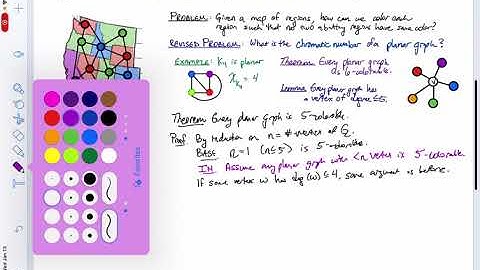 PROBLEM: Given a map of regions, how can we color each
region such that no two abutting regions have same color?
REVISED PROBLEM: What is the chromatic number of a planar graph?
EXAMPLE: K4 is planar
χK4 = 4
Theorem Every planar graph
is 6-colorable.
Lemma Every planar graph has
a vertex of degree ≤5.
Theorem Every planar graph is 5-colorable.
Proof By induction on n = # vertices of G.
BASE n=1 (n≤5) is 5-colorable.
IH Assume any planar graph with <n vertices is 5-colorable
If some vertex w has deg(w) ≤4, same argument as before.
Favorites